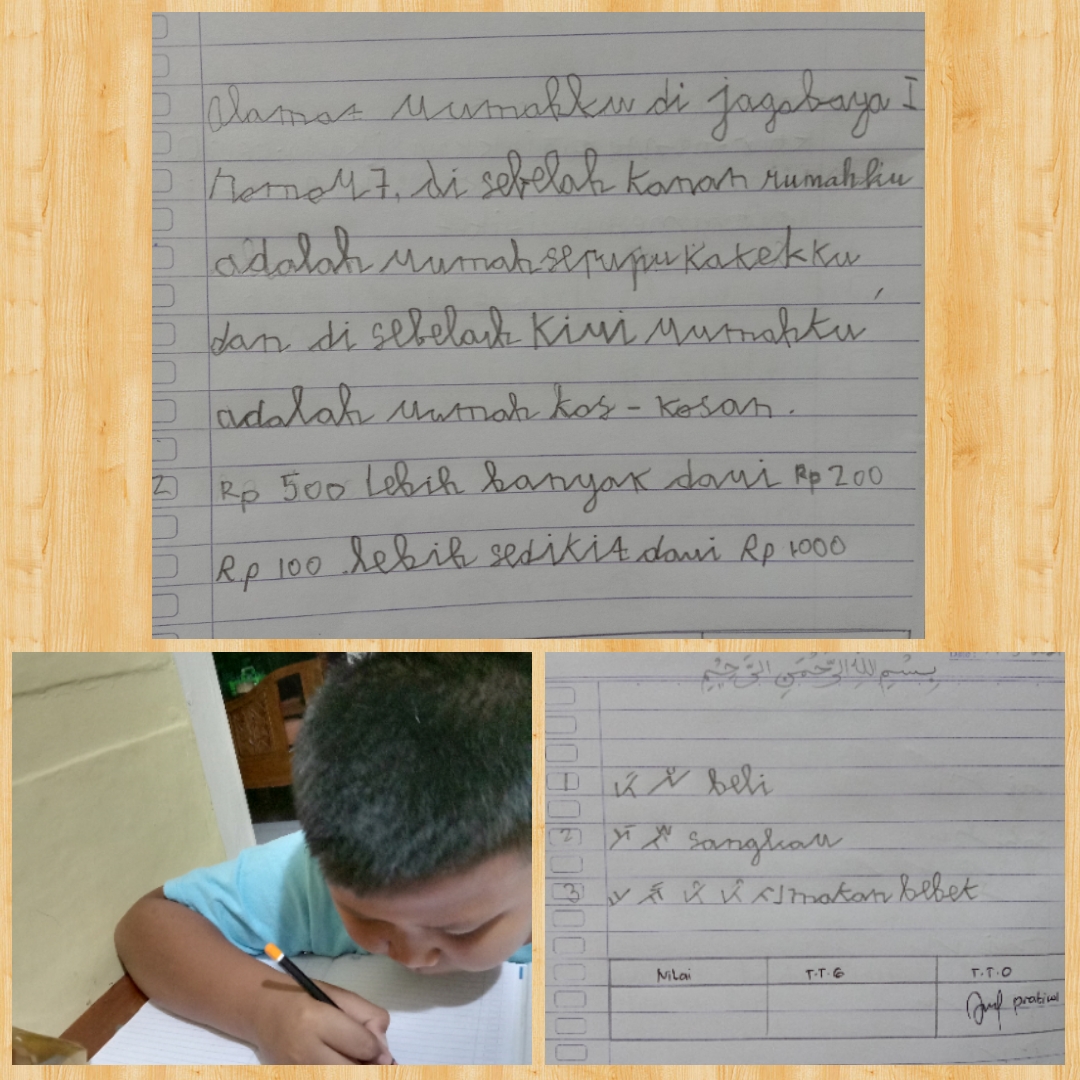 alamat rumahku di jagabaya I
nomor 7. di sebelah kanan rumahku
adalah rumah sepupu kakekku
dan di sebelah kiri rumahku
adalah rumah kos - kosan.
2 Rp 500 lebih banyak dari Rp 200
Rp 100 lebih sedikit dari Rp 1000
بسم الله الرحمن الرحيم
1 beli
2 sangkar
3 makan bebek
Nilai T.T.G T.T.O